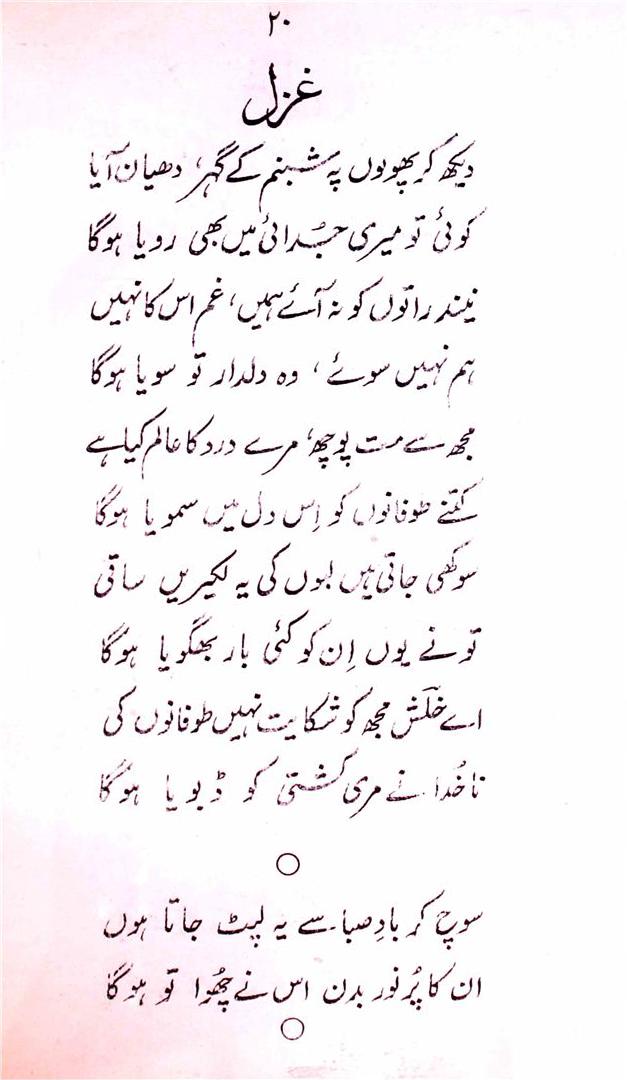 ۲۰
غزل
دیکھ کر پھولوں پہ شبنم کے گہر، دھیان آیا
کوئی تو میری جُدائی میں بھی رویا ہوگا
نیند راتوں کو نہ آئے ہمیں، غم اس کا نہیں
ہم نہیں سوئے، وہ دلدار تو سویا ہوگا
مجھ سے مت پوچھ، مرے درد کا عالم کیا ہے
کتنے طوفانوں کو اِس دل میں سمویا ہوگا
سوکھی جاتی ہیں لبوں کی یہ لکیریں ساقی
تو نے یوں اِن کو کئی بار بھگویا ہوگا
اے خلشؔ مجھ کو شکایت نہیں طوفانوں کی
ناخُدا نے مری کشتی کو ڈبویا ہوگا
سوچ کر بادِ صبا سے یہ لپٹ جاتا ہوں
ان کا پُرنور بدن اس نے چھُوا تو ہوگا